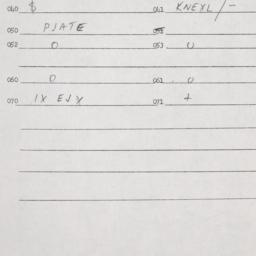 040 $ 041 KNEXL/-
050 PJATE
052 0 053 0
060 0 061 0
070 IX EJX 071 +